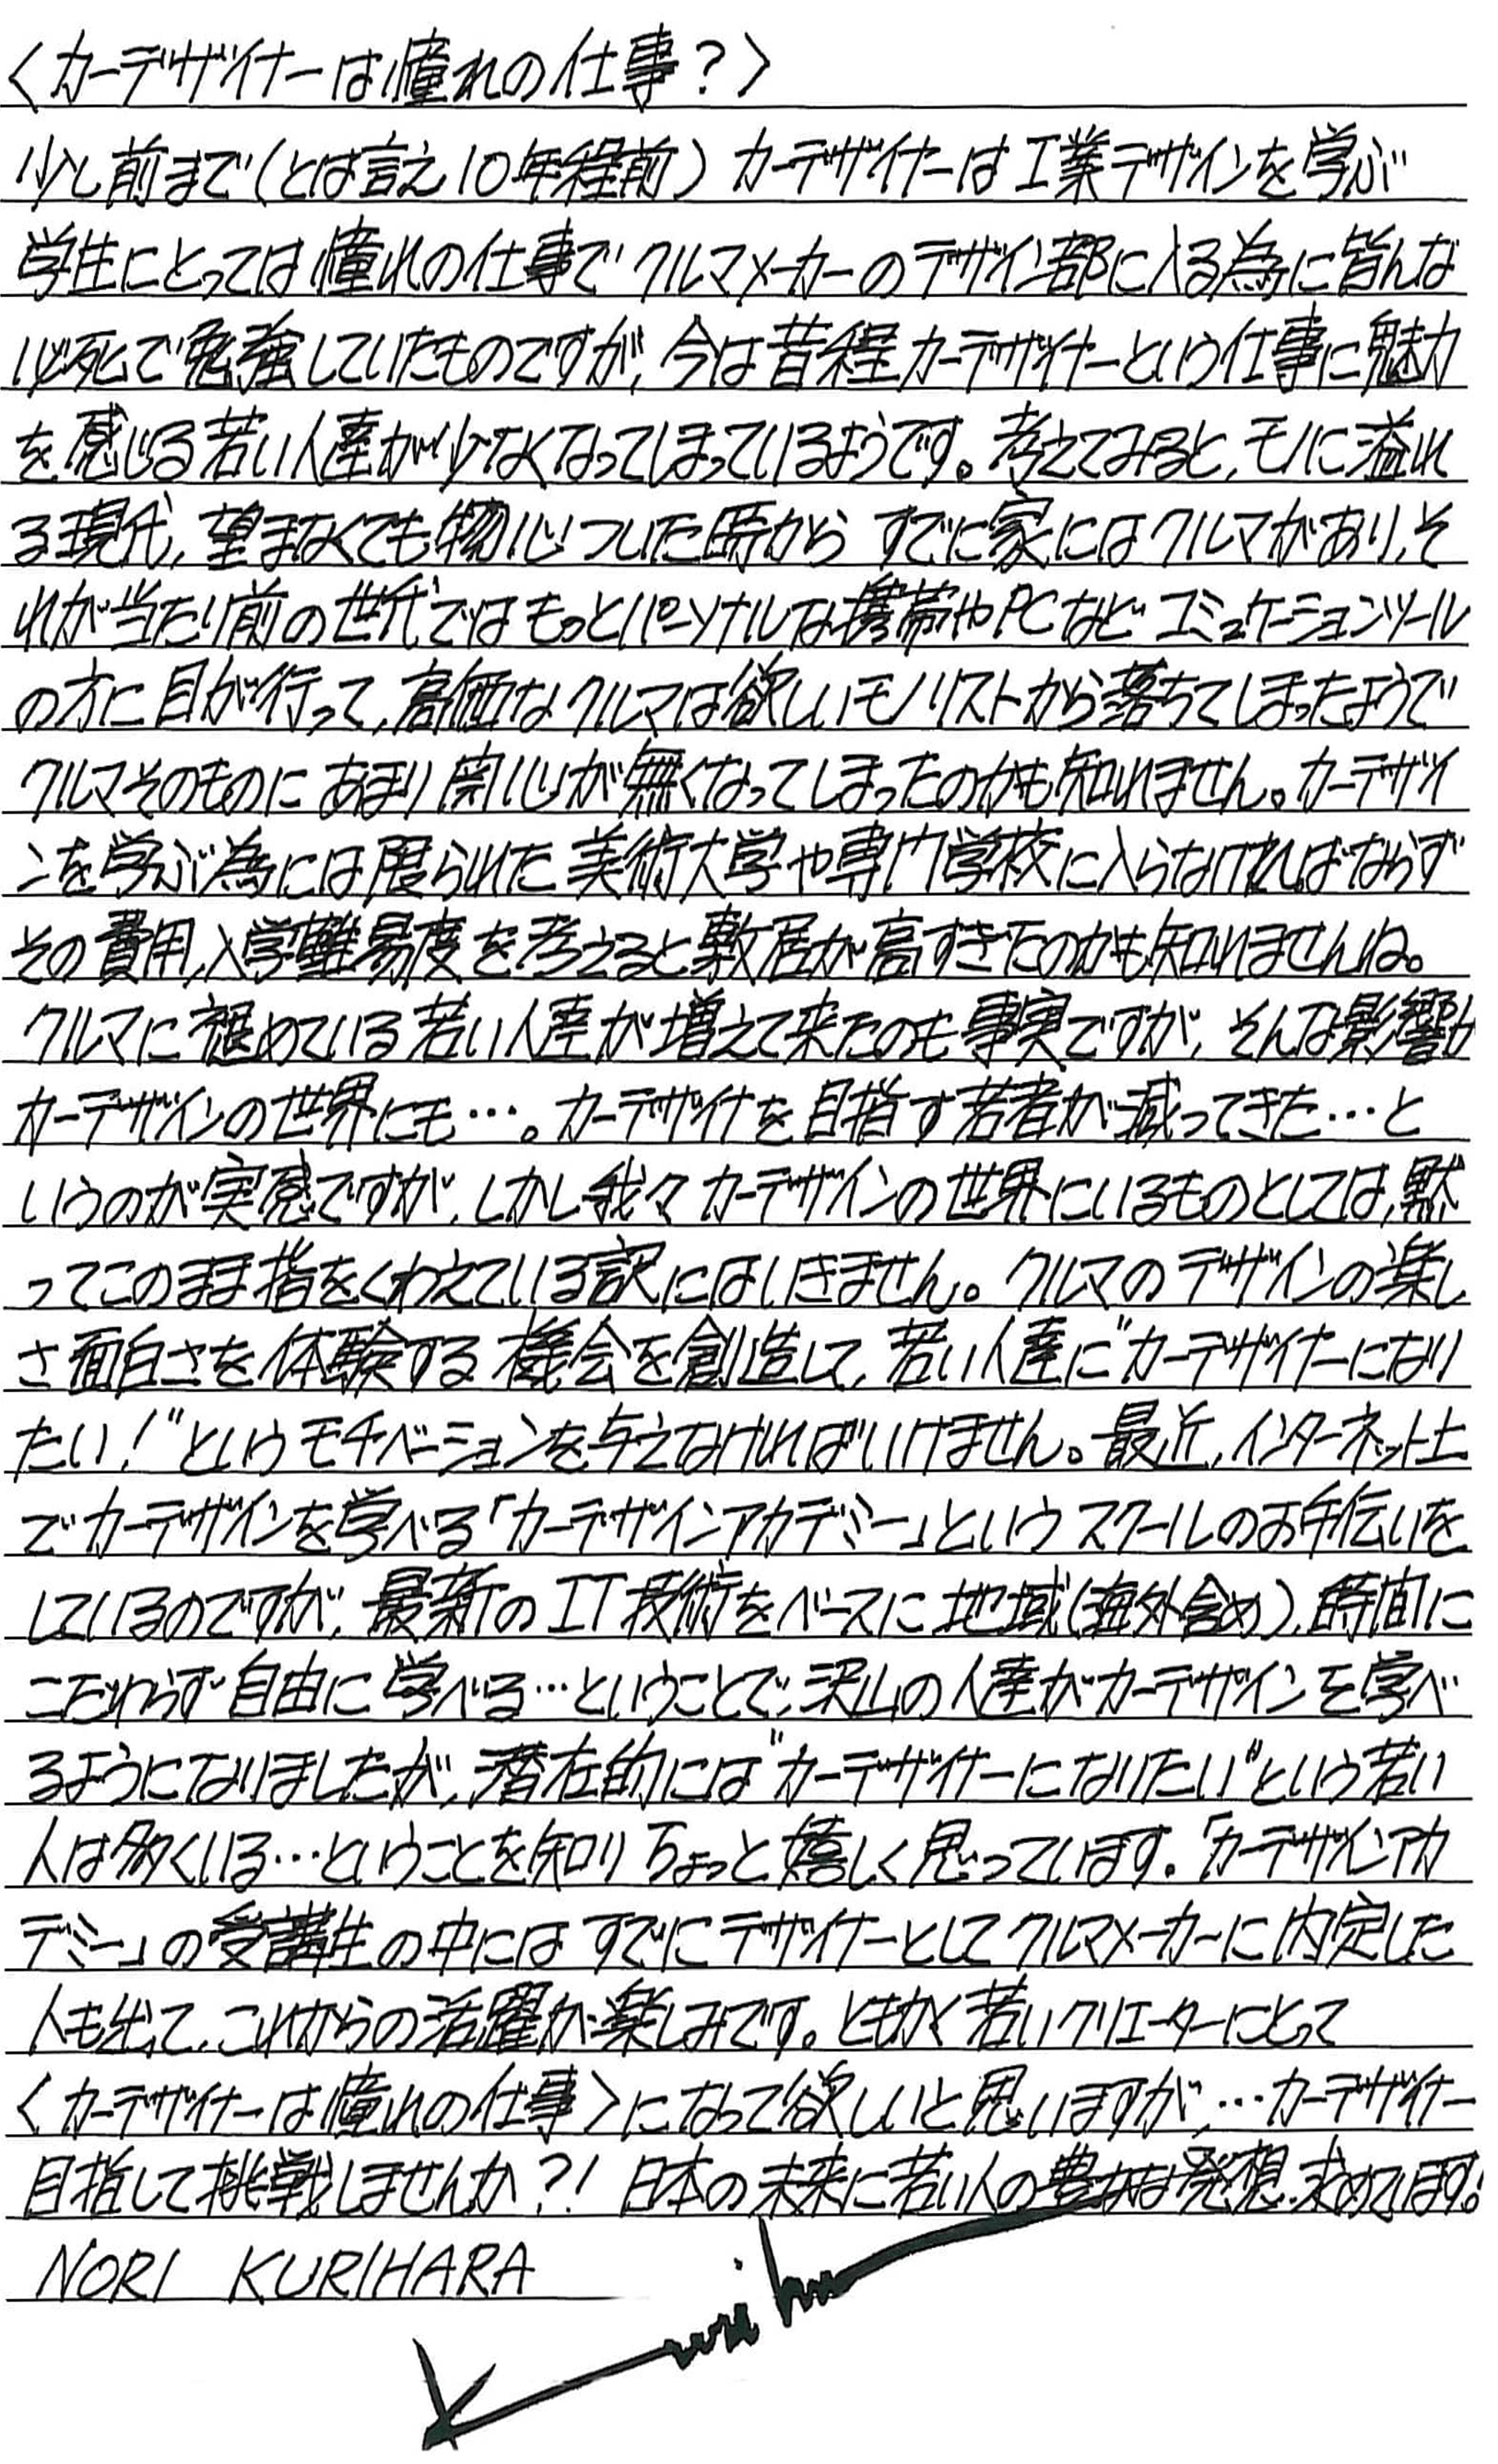 〈カーデザイナーは憧れの仕事？〉
少し前まで（とは言え10年程前）カーデザイナーは工業デザインを学ぶ
学生にとっては憧れの仕事でクルマメーカーのデザイン部に入る為に皆んな
必死で勉強していたものですが、今は昔程カーデザイナーという仕事に魅力
を感じる若い人達が少なくなってしまっているようです。考えてみると、モノに溢れ
る現代、望まなくても物心ついた時からすでに家にはクルマがあり、そ
れが当たり前の世代ではもっとパーソナルな携帯やPCなどコミュケーションツール
の方に目が行って、高価なクルマは欲しいモノリストから落ちてしまったようで
クルマそのものにあまり関心が無くなってしまったのかも知れません。カーデザイ
ンを学ぶ為には限られた美術大学や専門学校に入らなければならず
その費用、入学難易度を考えると敷居が高すぎたのかも知れませんね。
クルマに褪めている若い人達が増えて来たのも事実ですが、そんな影響が
カーデザインの世界にも…。カーデザイナを目指す若者が減ってきた…と
いうのが実感ですが、しかし我々カーデザインの世界にいるものとしては、黙
ってこのまま指をくわえている訳にはいきません。クルマのデザインの楽し
さ面白さを体験する機会を創造して、若い人達に"カーデザイナーになり
たい！"というモチベーションを与えなければいけません。最近、インターネット上
でカーデザインを学べる「カーデザインアカデミー」というスクールのお手伝いを
しているのですが、最新のIT技術をベースに地域（海外含め）、時間に
こだわらず自由に学べる…ということで、沢山の人達がカーデザインを学べ
るようになりましたが、潜在的には"カーデザイナーになりたい"という若い
人は多くいる…ということを知りちょっと嬉しく思っています。「カーデザインアカ
デミー」の受講生の中にはすでにデザイナーとしてクルマメーカーに内定した
人も出て、これからの活躍が楽しみです。ともかく若いクリエーターにとって
〈カーデザイナーは憧れの仕事〉になって欲しいと思いますが、…カーデザイナー
目指して挑戦しませんか？！日本の未来に若い人の豊かな発想、求めてます！
NORI KURIHARA